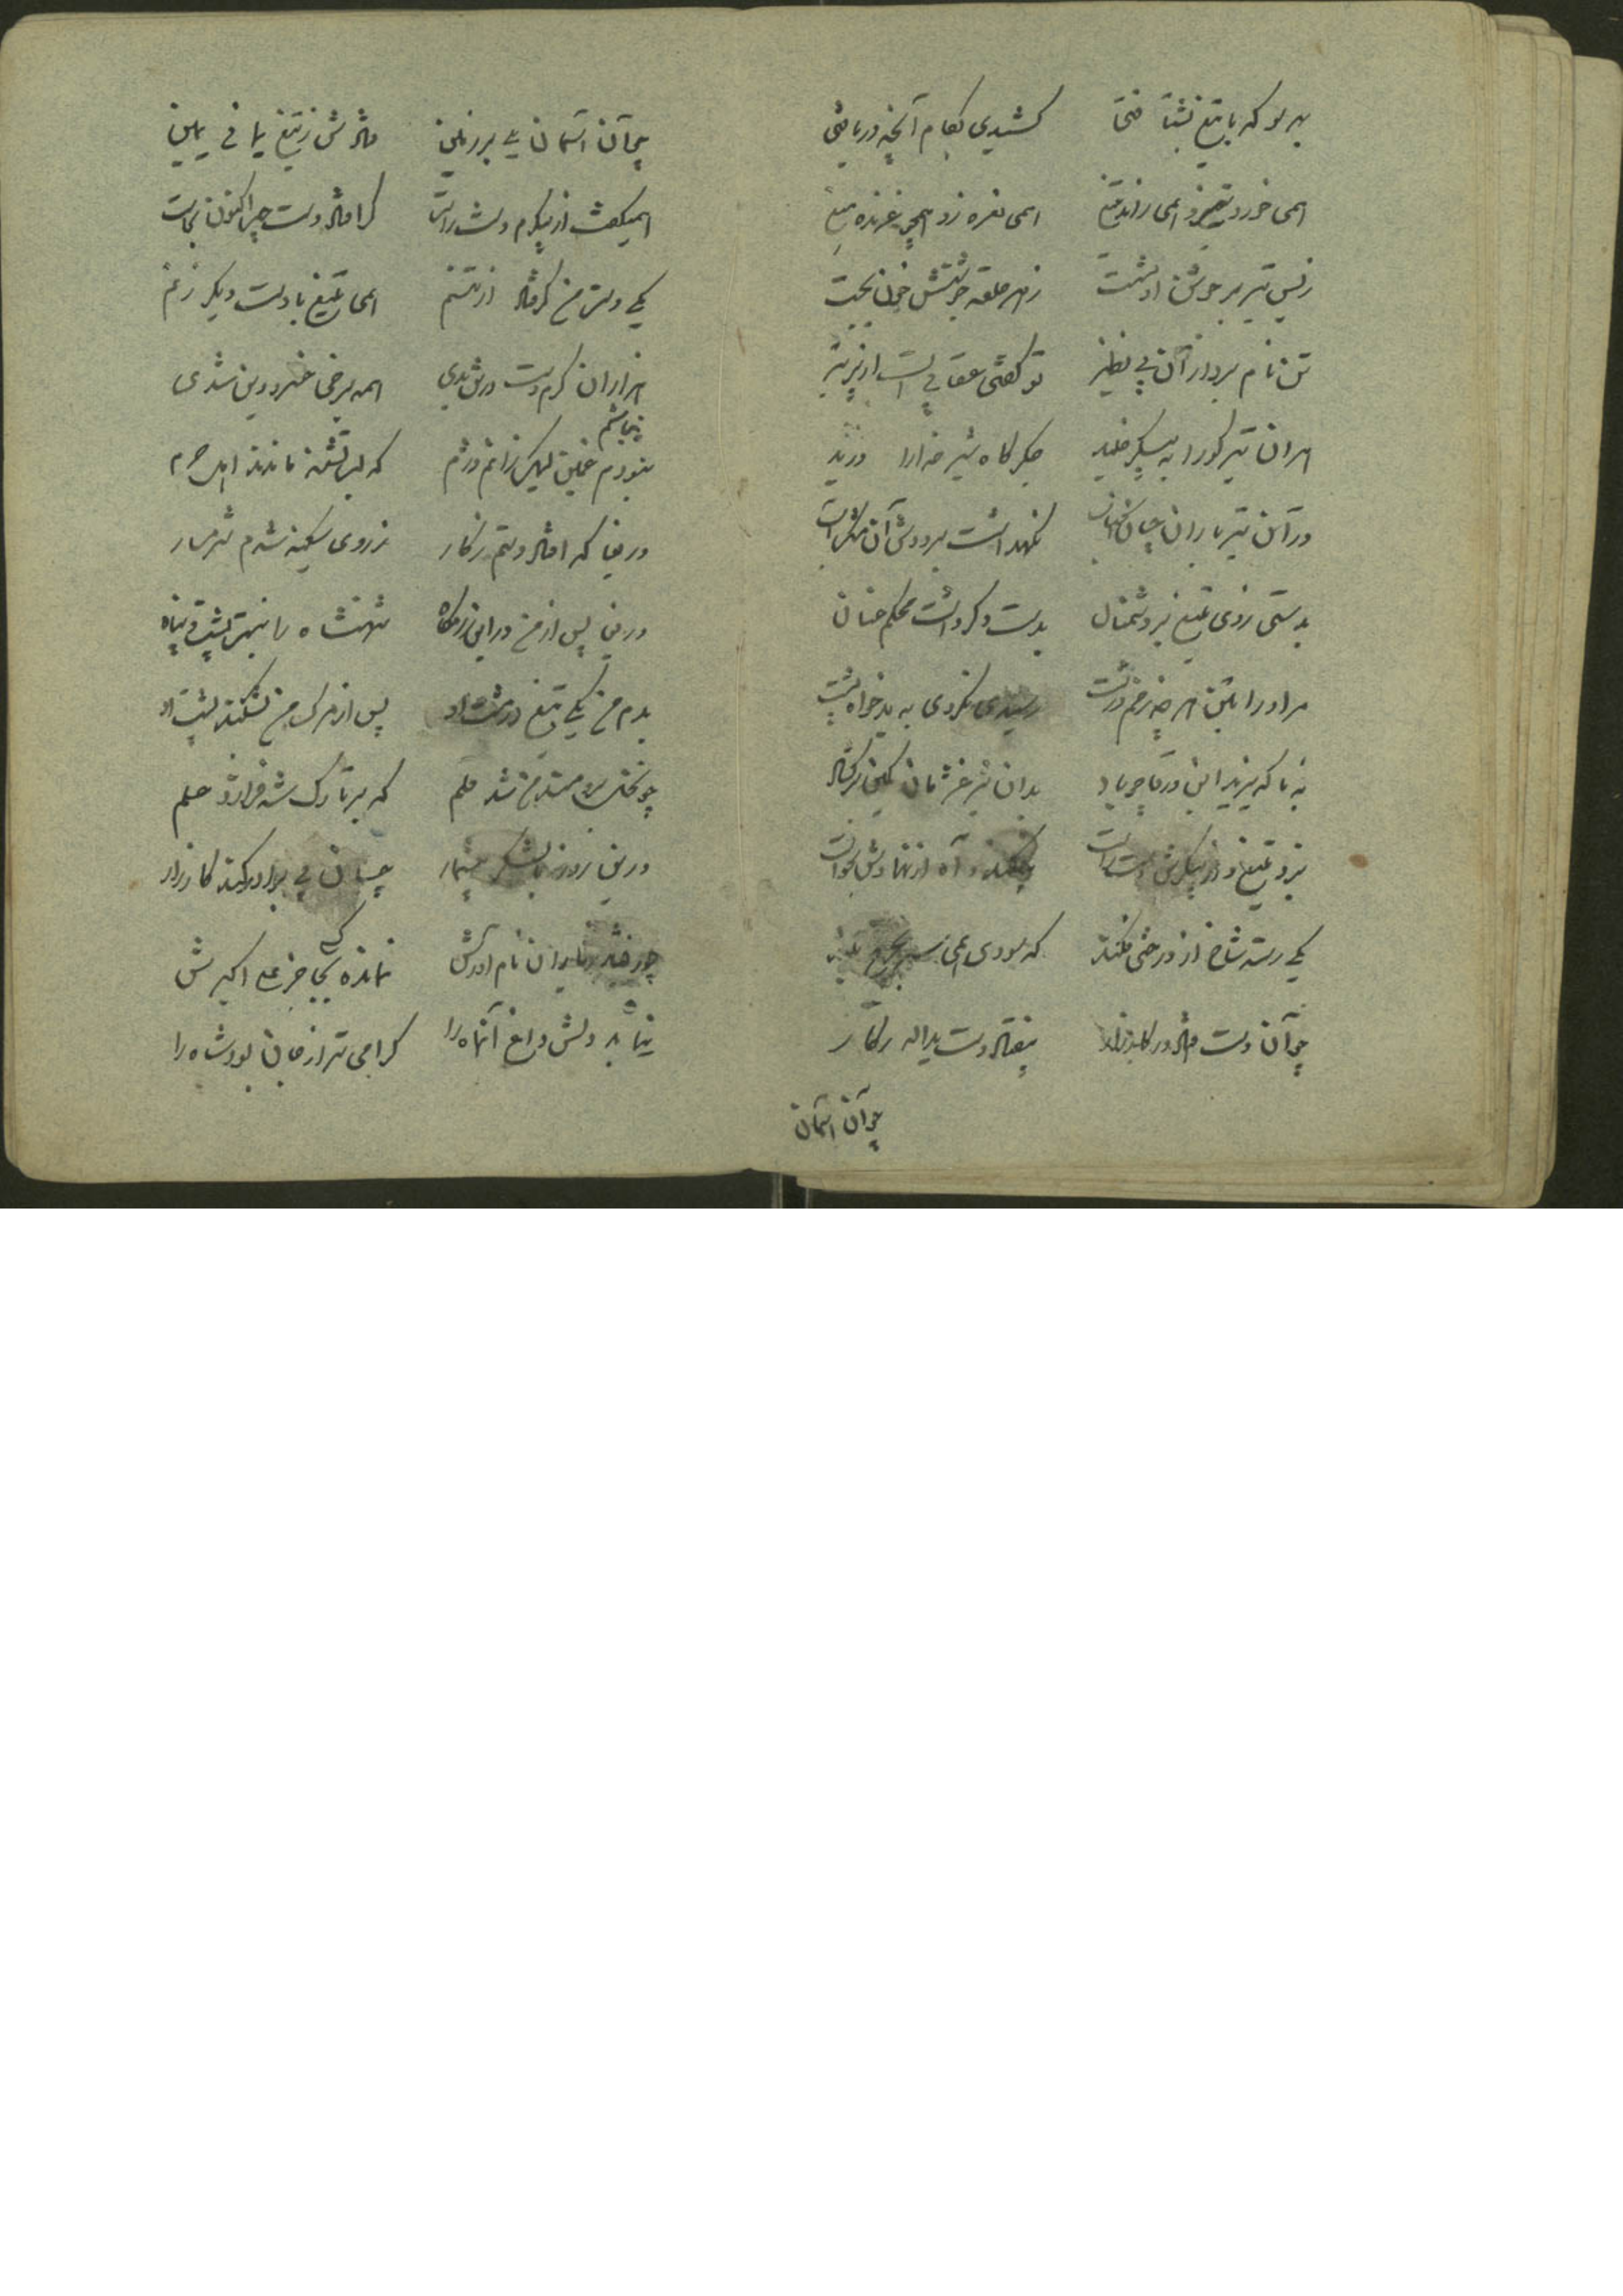 بهر سو که با تیغ بشتافتی کشیدی بکام آنچه دریافتی
همی خورد تیر و همی راند تیغ همی نعره زد همچو غرنده میغ
ز بس تیر بر جوشن او نشست ز هر حلقه جوشنش خون بجست
تن نام بردار آن بی نظیر تو گفتی عقابی است از پر تیر
هر آن تیر کو را به پیکر خلید جگرگاه شیر خدا را درید
در آن تیر باران چنان نگهداشت بر دوش آن مشک آب
بدستی زدی تیغ بر دشمنان بدست دگر داشت محکم عنان
مر او را بتن هر چه زخم درشت رسیدی نکردی به بدخواه پشت
به ناگه یزید ابن ورقا چو باد بدان شیر غژمان کمین برگشاد
بزد تیغ و از پیکرش دست راست بیفکند و آه از نهادش بخواست
یکی رسته شاخ از درختی فکند که سودی همی سر بچرخ بلند
چو آن دست فتاد در کارزار بیفتاد دست یداله ز کار
چو آن آسمان
چو آن آسمان یلی بر زمین فتادش ز تیغ یمانی یمین
همیگفت از پیکرم دست راست گر افتاد دست چپ اکنون بجاست
یکی دست من گر فتاد از تنم همی تیغ با دست دیگر زنم
هزاران گرم دست در تن بدی همه برخی خسرو دین شدی
نیم باشم
نبودم غمین لیک زانم دژم که لب تشنه ماندند اهل حرم
دریغا که افتاد دستم ز کار ز روی سکینه شدم شرمسار
دریغا پس از من در این رزمگاه شهنشاه را نیست پشت و پناه
بدم من یکی تیغ در مشت او پس از مرگ من بشکند پشت او
چو نخل من شد قلم که بر تارک شه فرازد علم
درین روز با لشکر بیشمار چسان بی برادر کند کارزار
چو از نام آورش نمانده بجا جز علی اکبرش
کسی
نماند دلش داغ آنماه را گرامی تر از جان بود شاه را